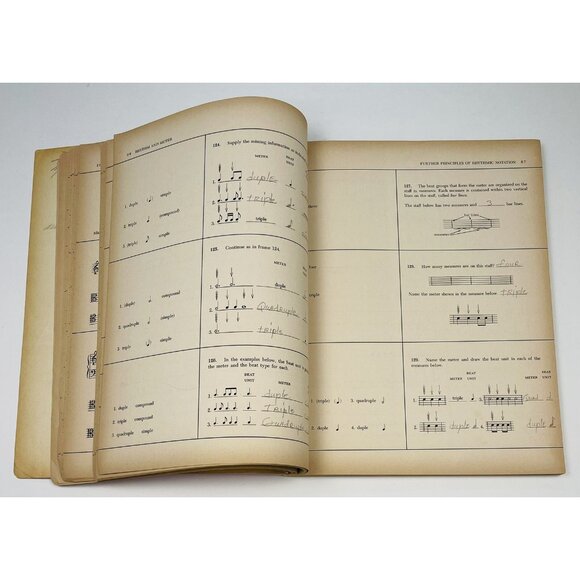 RHYTHM AND METER
124. Supply the missing information as
METER BEAT UNIT
1. duple
2. triple
3. triple
1. duple simple
2. triple (compound)
3. (triple) simple
125. Continue as in frame 124.
METER
1. duple
2. Quadruple
3. triple
1. (duple) compound
2. quadruple (simple)
3. triple (simple)
126. In the examples below, the beat unit
the meter and the beat type for each.
BEAT UNIT METER
1. duple
2. Triple
3. Quadruple
1. duple compound
2. triple compound
3. quadruple simple
1. (triple) 3. quadruple
2. duple 4. duple
FURTHER PRINCIPLES OF RHYTHMIC NOTATION 87
127. The beat groups that form the meter are organized on the
staff in measures. Each measure is contained within two vertical
lines on the staff, called bar lines.
The staff below has two measures and 3 bar lines.
128. How many measures are on this staff? four
Name the meter shown in the measure below. triple
129. Name the meter and draw the beat unit in each of the
measures below.
BEAT BEAT
METER UNIT METER UNIT
1. triple 3.
2. duple 4. duple